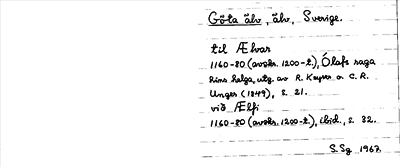 Göta älv, älv, Sverige.
til Ælvar
1160-80 (avskr. 1200-t.), Ólafs saga
hins helga, utg. av R. Keyser o. C. R.
Unger (1849), s. 21.
við Ælfi
1160-80 (avskr. 1200-t.), ibid., s. 32.
S.Sg 1967.